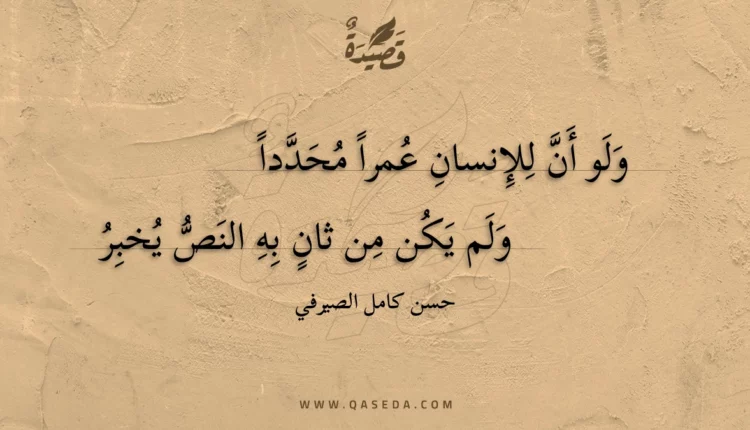 قَصِيدَةٌ
وَلَو أَنَّ لِلإِنسانِ عُمراً مُحَدَّداً
وَلَم يَكُن مِن ثانٍ بِهِ النَصُّ يُخبِرُ
حسن كامل الصيرفي
WWW.QASEDA.COM